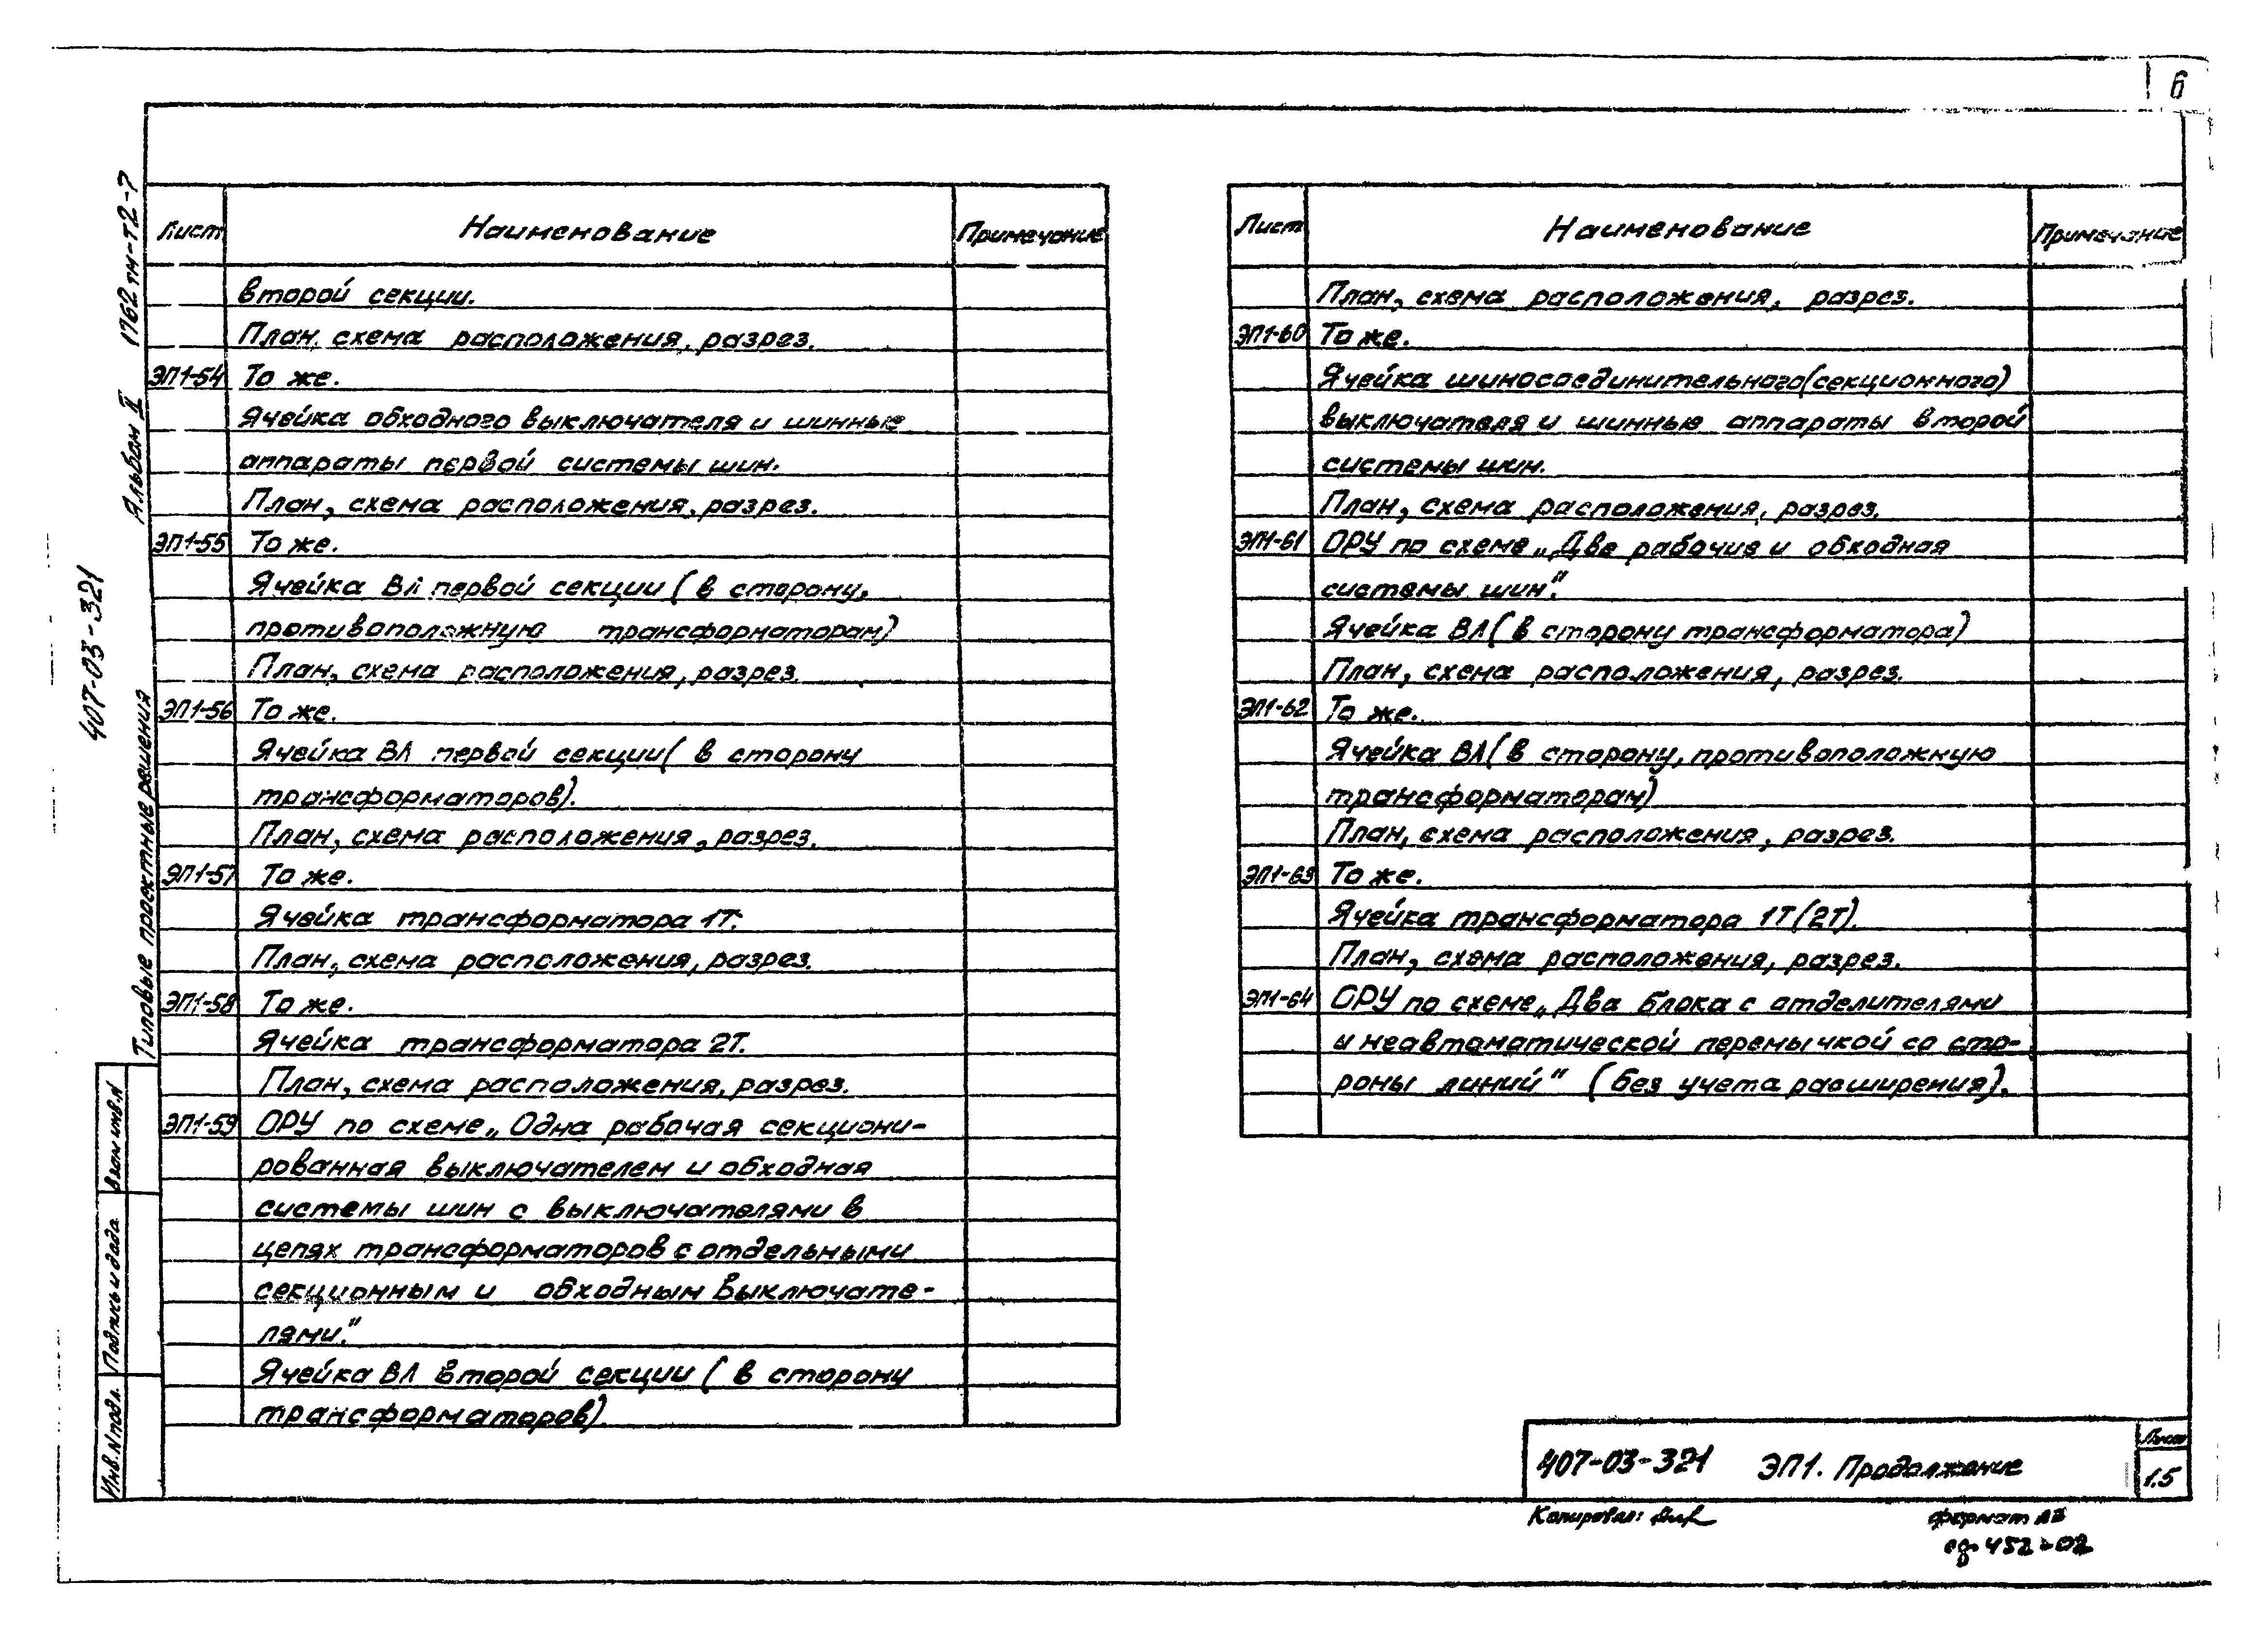 6
407-03-321
Типовые проектные решения Альбом II 1762тм-т2-7
Лист Наименование Примечание
второй секции.
План, схема расположения, разрез.
ЭП1-54 То же.
Ячейка обходного выключателя и шинные
аппараты первой системы шин.
План, схема расположения, разрез.
ЭП1-55 То же.
Ячейка ВЛ первой секции (в сторону,
противоположную трансформаторам)
План, схема расположения, разрез.
ЭП1-56 То же.
Ячейка ВЛ первой секции (в сторону
трансформаторов).
План, схема расположения, разрез.
ЭП1-57 То же.
Ячейка трансформатора 1Т.
План, схема расположения, разрез.
ЭП1-58 То же.
Ячейка трансформатора 2Т.
План, схема расположения, разрез.
ЭП1-59 ОРУ по схеме „Одна рабочая секциони-
рованная выключателем и обходная
системы шин с выключателями в
цепях трансформаторов с отдельными
секционным и обходным выключате-
лями."
Ячейка ВЛ второй секции (в сторону
трансформаторов).
Лист Наименование Примечание
План, схема расположения, разрез.
ЭП1-60 То же.
Ячейка шиносоединительного (секционного)
выключателя и шинные аппараты второй
системы шин.
План, схема расположения, разрез.
ЭП1-61 ОРУ по схеме „Две рабочие и обходная
системы шин".
Ячейка ВЛ (в сторону трансформатора)
План, схема расположения, разрез.
ЭП1-62 То же.
Ячейка ВЛ (в сторону, противоположную
трансформаторам)
План, схема расположения, разрез.
ЭП1-63 То же.
Ячейка трансформатора 1Т (2Т).
План, схема расположения, разрез.
ЭП1-64 ОРУ по схеме „Два блока с отделителями
и неавтоматической перемычкой со сто-
роны линий" (без учета расширения).
Инв.N подл. Подпись и дата Взам инв.N
407-03-321 ЭП1. Продолжение
Лист
1.5
Копировал:
формат А3
ср 452-02